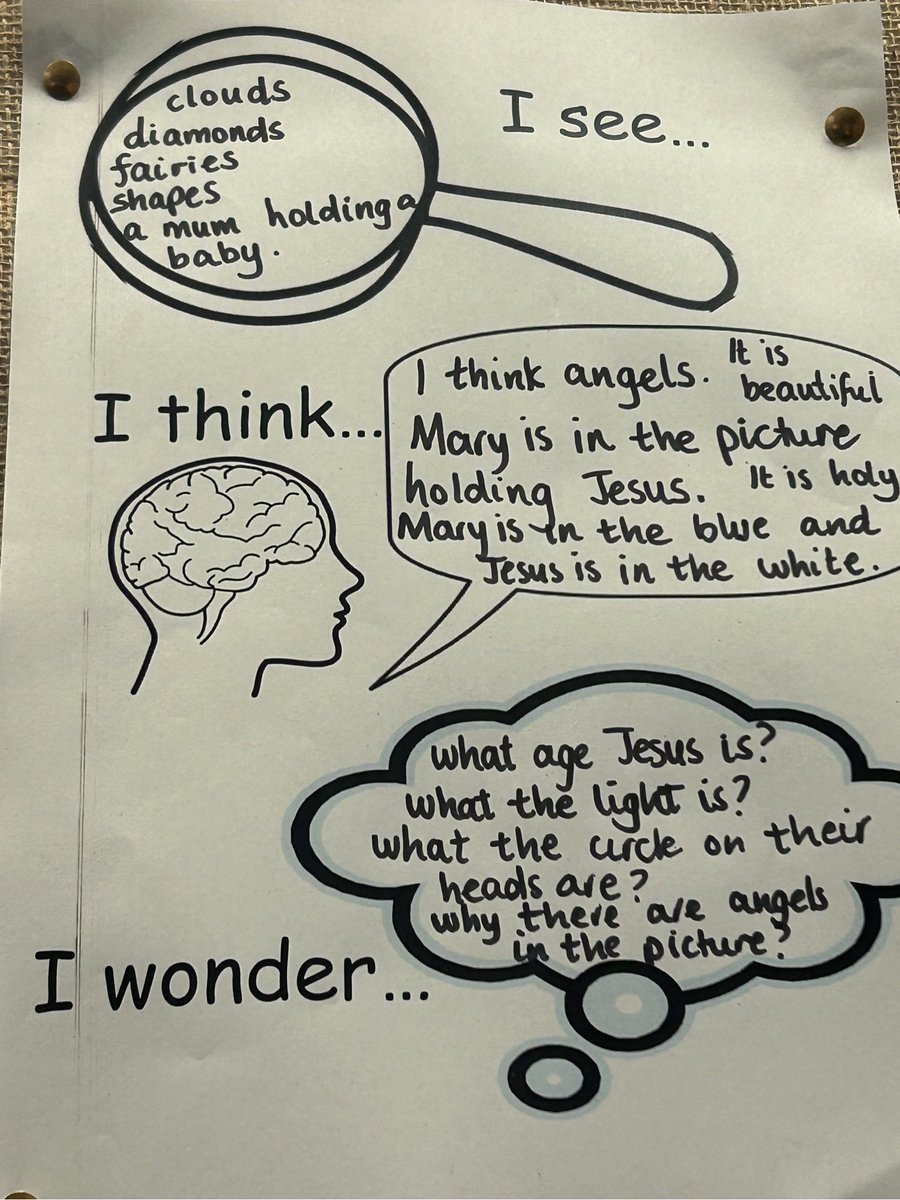 I see...
clouds
diamonds
fairies
shapes
a mum holding a
baby.
I think...
I think angels. It is
beautiful
Mary is in the picture
holding Jesus. It is holy
Mary is in the blue and
Jesus is in the white.
I wonder...
what age Jesus is?
what the light is?
what the circle on their
heads are?
why there are angels
in the picture?